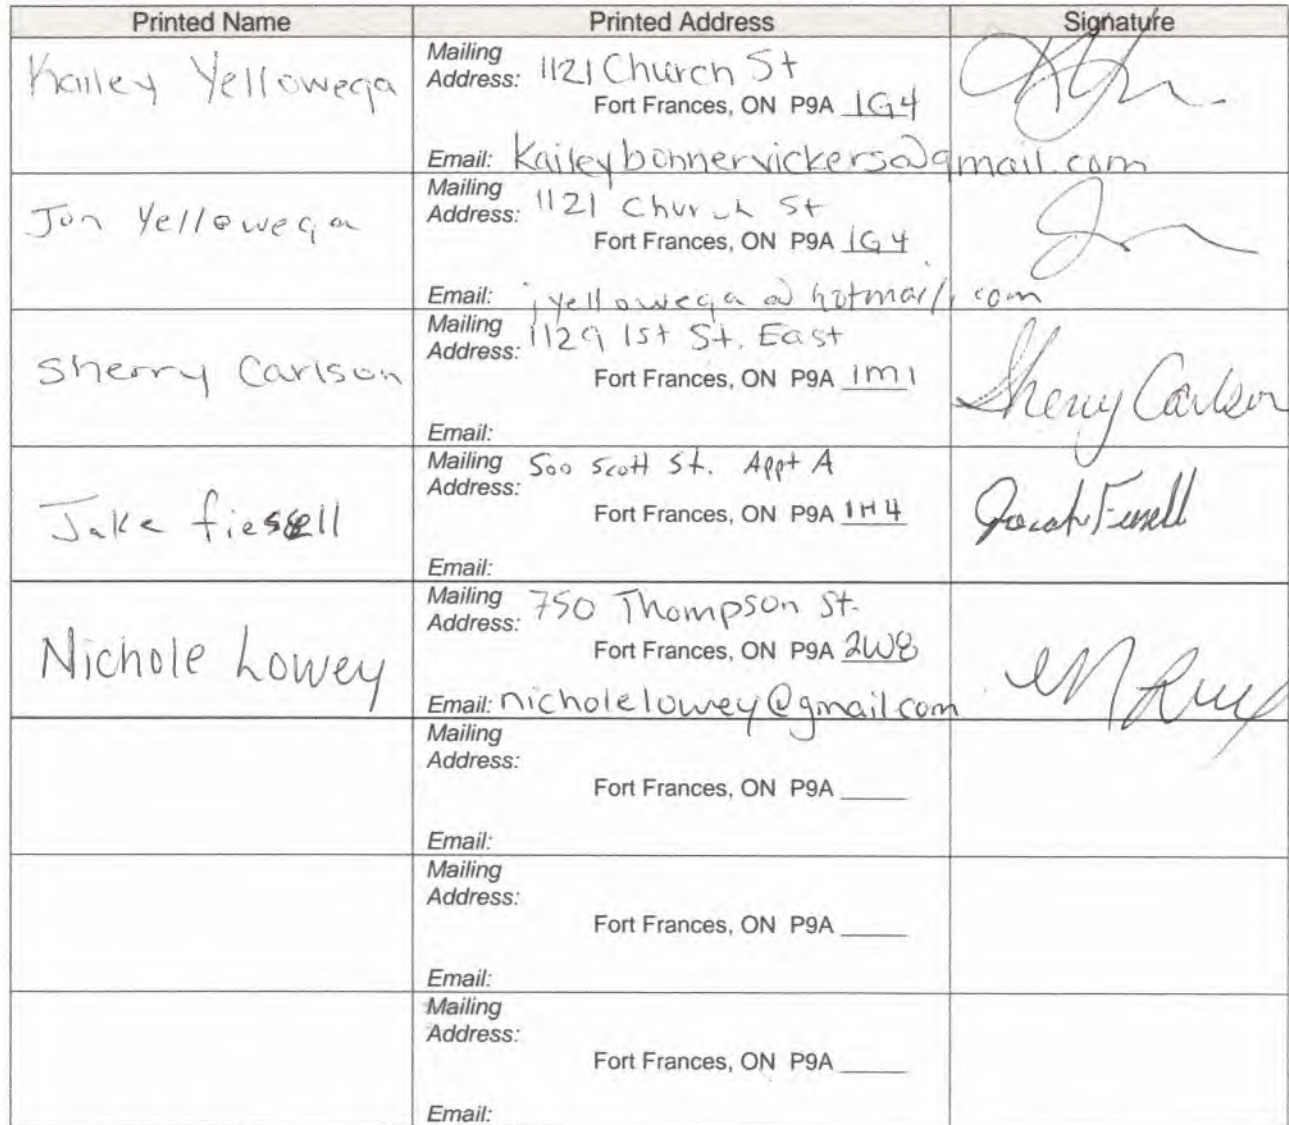 Printed Name Printed Address Signature
Kailey Yellowega
Mailing
Address: 1121 Church St
Fort Frances, ON P9A 1G4
Email: Kaileybonnervickers@gmail.com
Jon Yellowega
Mailing
Address: 1121 Church St
Fort Frances, ON P9A 1G4
Email: jyellowega@hotmail.com
Sherry Carlson
Mailing
Address: 1129 1st St. East
Fort Frances, ON P9A 1M1
Email:
Sherry Carlson
Jake fiessell
Mailing
Address: 500 Scott St. Appt A
Fort Frances, ON P9A 1H4
Email:
Nichole Lowey
Mailing
Address: 750 Thompson St.
Fort Frances, ON P9A 2W8
Email: nicholelowey@gmail.com
Mailing
Address:
Fort Frances, ON P9A
Email:
Mailing
Address:
Fort Frances, ON P9A
Email:
Mailing
Address:
Fort Frances, ON P9A
Email: